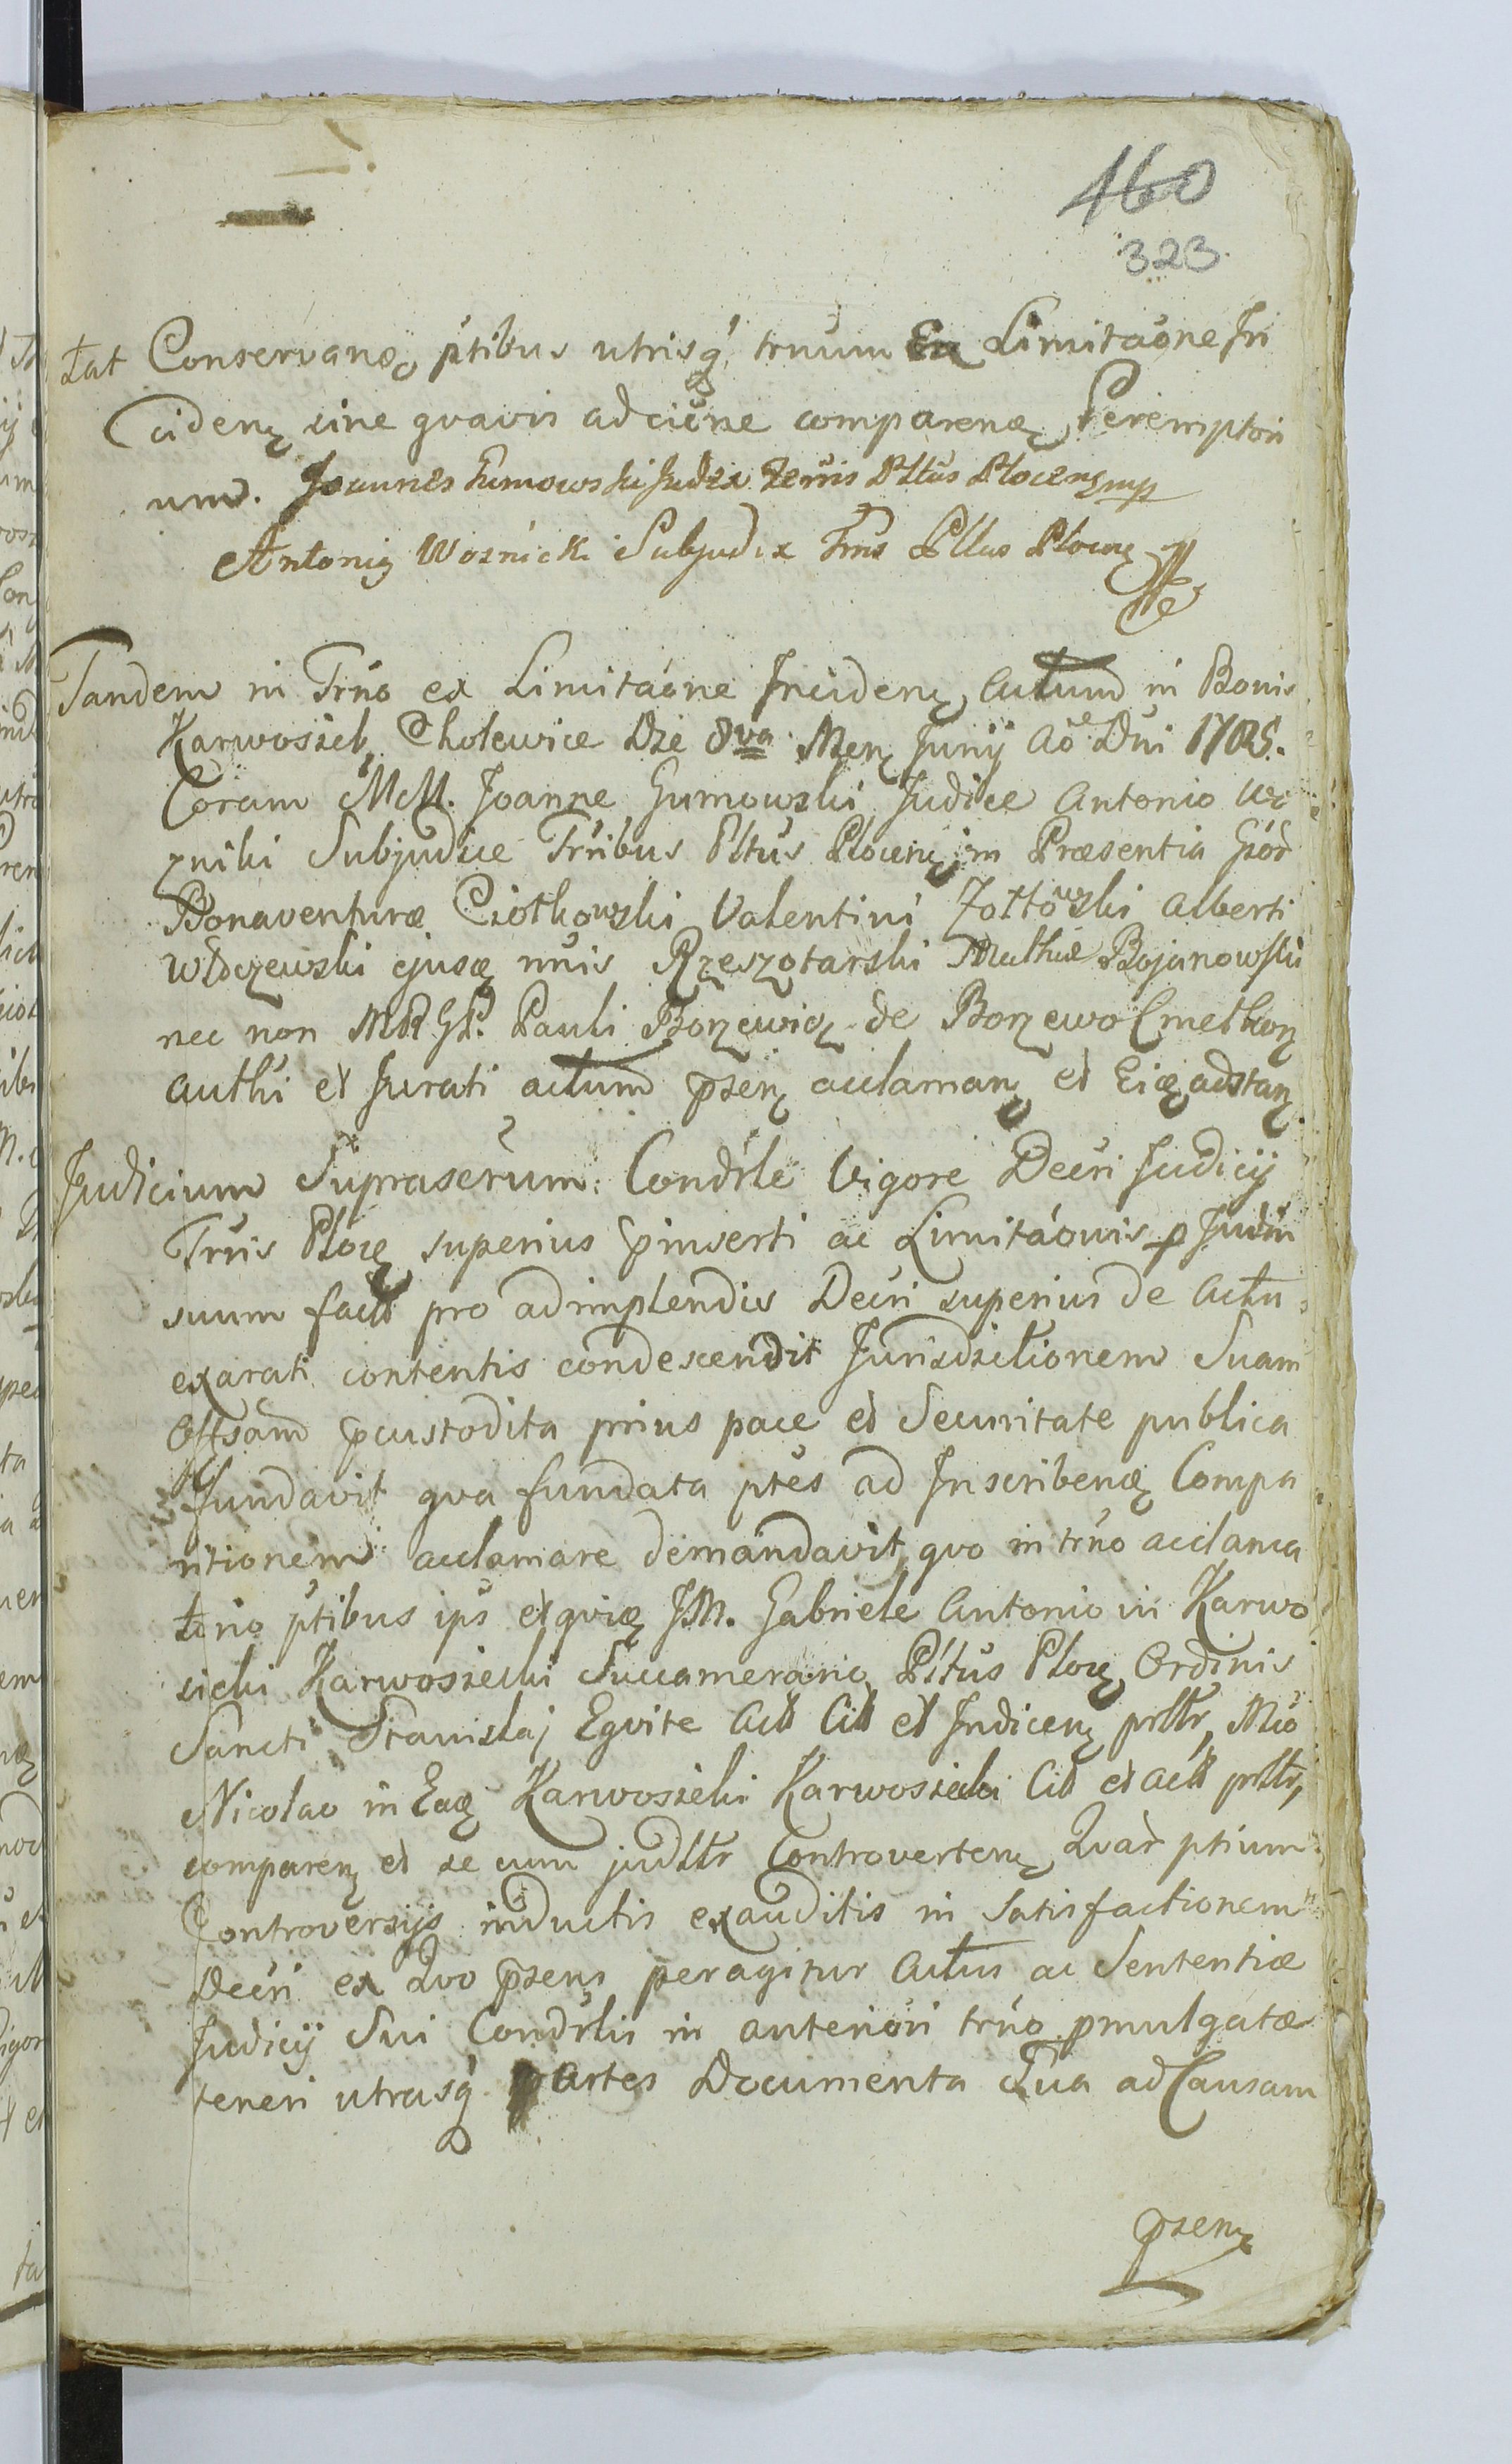 460
323
tat Conservanꝫ ptibus utrisq́ trnum Ex Limitaóne In
Cidenꝫ sine qvavis adciõne comparenꝫ Perempton
um. Joannes Gumowski Judex Terris Pttûs Plocensmp
Antonig Woznicki Subjudex Trris Pttus Plocenꝫ mp
Tandem in Trno ex Limitaóne Incidenꝫ Actum in Bonis
Karwosieb Cholewice Die 8va Menꝫ Junij Ao Dni 1785.
Coram MM. Joanne Gumowski Judice Antonio Wo
zniki Subjudice Trribus Pttûs Plocenꝫ in Præsentia Gsód
Bonaventuræ Ciotkowski Valentini Zołtowski Alberti
Wilczewski ejusꝫ nnis Rzeszotarski Mathiæ Bojanowski
nec non MRGP. Pauli Borzewicz de Borzewo Cmethonꝫ
Authi et Jurati actum pzenꝫ acclamanꝫ et Eiꝫ adstanꝫ.
Judicium Suprascrum: Condrle Vigore Decri Judicij
Trris Plocꝫ superius pinserti ac Limitaónis p Judm
suum fact pro adimplendis Decri superius de Actu
exarati contentis condescendit Jurisdictionem Suam
Offsam pcustodita prius pace et Securitate publica
fundavit qva fundata ptes ad Inscribenꝫ Compa
ritionem acclamare demandavit, qvo in trno acclama
tno ptibus ips et qviꝫ JM. Gabriele Antonio in Karwo
sieki Karwosiecki Succamerario Pttûs Plocꝫ Ordinis
Sancti Stanislaj Eqvite Act Cit et Indicenꝫ prltr, Mco
Nicolao in Eaꝫ Karwosieki Karwosiecki Cit et act prltr,
comparenꝫ et se cum judltr Controvertenꝫ Qvar ptium
Controversijs inductis exauditis in Satisfactionem
Decri ex Qvo pzens peragitur Actus ac Sententiæ
Judicij Sui Condrlis in anteriori trno pmulgatæ
teneri utrasq́ partes Documenta Qua ad Causam
pzenꝫ